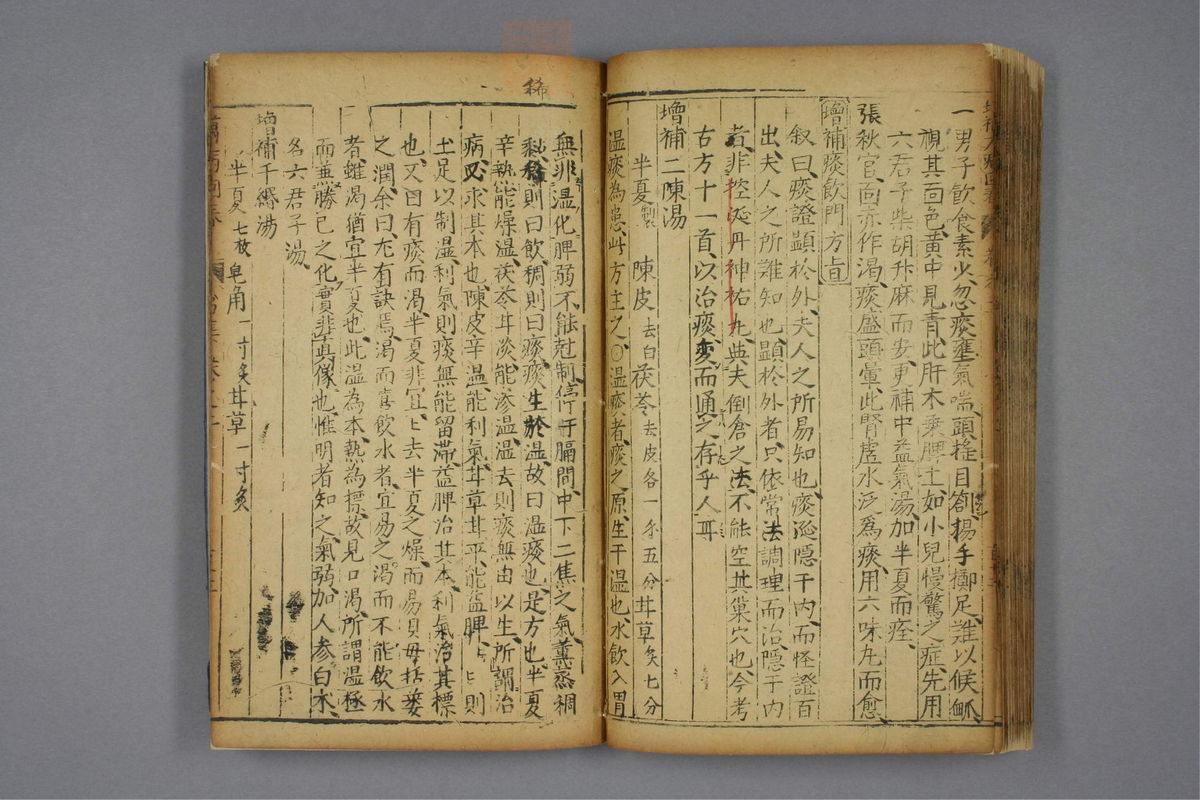 一男子飲食素少忽痰壅氣喘頭搖目劄揚手擲足難以候𦙾
視其面色黄中見青此肝木乘脾土如小兒慢驚之症先用
六君子柴胡升麻而安更補中益氣湯加半夏而痊
張秋官面亦作渴痰盛頭暈此腎虚水泛爲痰用六味丸而愈
增補痰飲門方旨
叙曰痰證顯於外夫人之所易知也痰涎隠于内而怪證百
出夫人之所難知也顯於外者只依常法調理而治隠于内
者非控涎丹神祐丸典夫倒倉之法不能空其巢穴也今考
古方十一首以治痰変而通之存乎人耳
增補二陳湯
半夏製 陳皮去白 茯苓去皮各一錢五分 甘草炙七分
温痰為患此方主之〇温痰者痰之原生于温也水飲入胃
無非温化脾弱不能尅制停于膈間中下二焦之氣薫蒸稠
黏稀則曰飲稠則曰痰痰生於温故曰温痰也是方也半夏
辛熱能燥温茯苓甘淡能滲温温去則痰無由以生所謂治
病必求其本也陳皮辛温能利氣甘草甘平能益脾〻〻則
土足以制温利氣則痰無能留滞益脾治其本利氣治其標
也又曰有痰而渇半夏非宜〻去半夏之燥而易貝母括蔞
之潤余曰尤有訣焉渇而喜飲水者宜易之渇而不能飲水
者雖渇猶宜半夏也此温為本熱為標故見口渇所謂温極
而兼勝己之化實非真像也惟明者知之氣弱加人参白术
名六君子湯
增補千緡湯
半夏七枚 皂角一寸炙 甘草一寸炙
稀